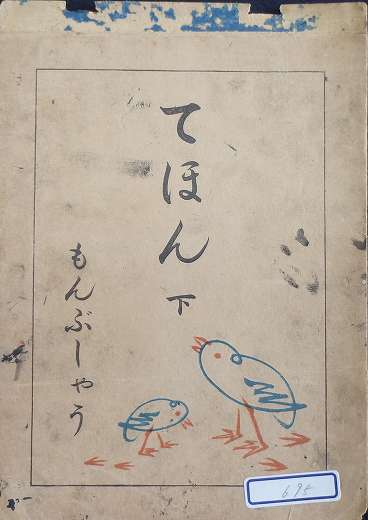 てほん 下
もんぶしやう
695